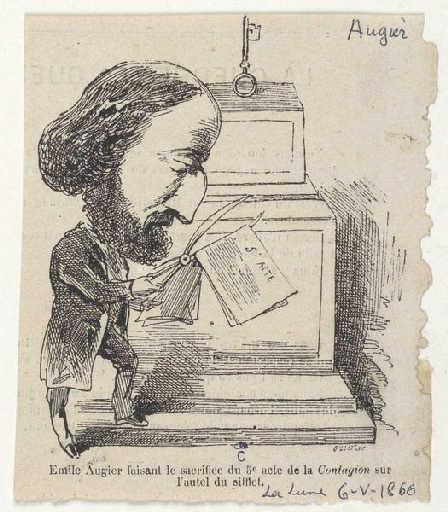 Augier
5e ACTE
C
Emile Augier faisant le sacrifice du 5e acte de la Contagion sur
l'autel du sifflet.
La Lune 6-V-1866